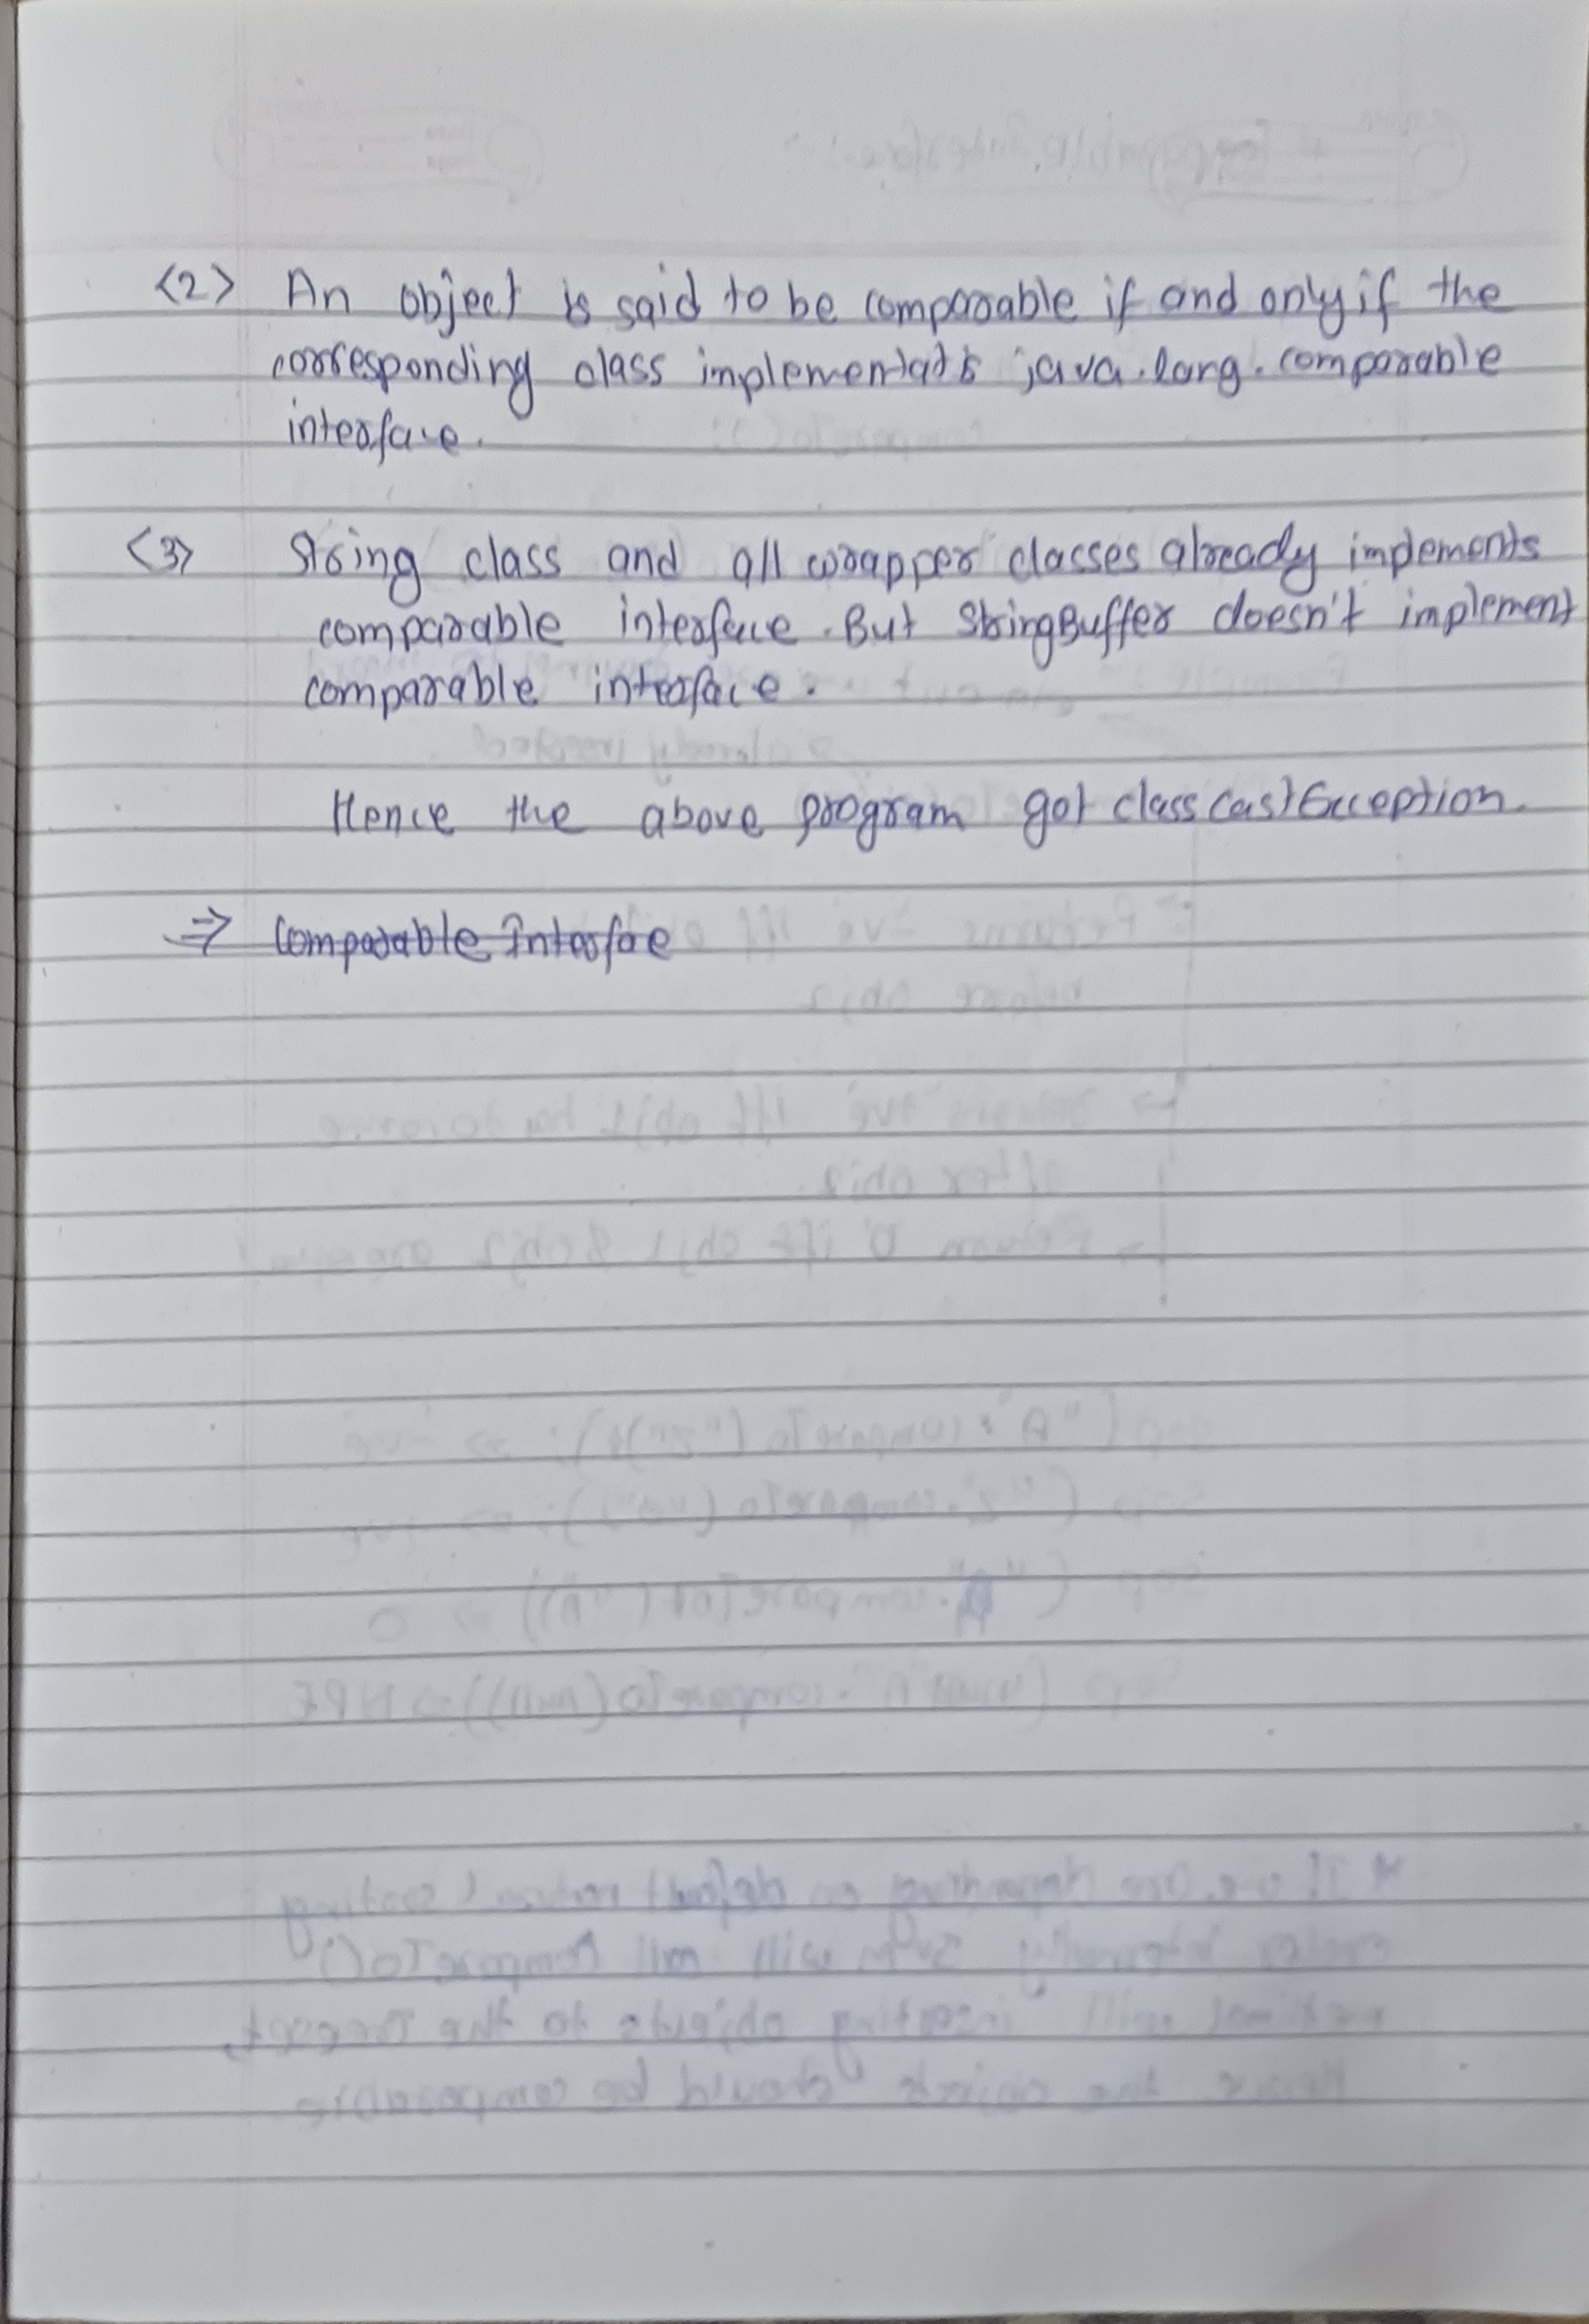 <2> An object is said to be comparable if and only if the
corresponding class java.lang.comparable
interface.
<3> String class and all wrapper classes already implements
comparable interface. But StringBuffer doesn't implement
comparable interface.
Hence the above program got classCastException.
⇒ Comparable Interfae